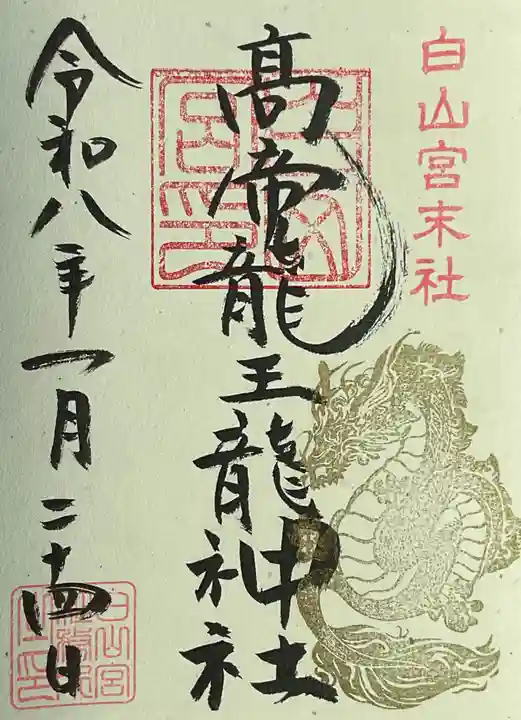 白山宮末社
髙帝龍王龍神社
令和八年一月二十四日
白山宮